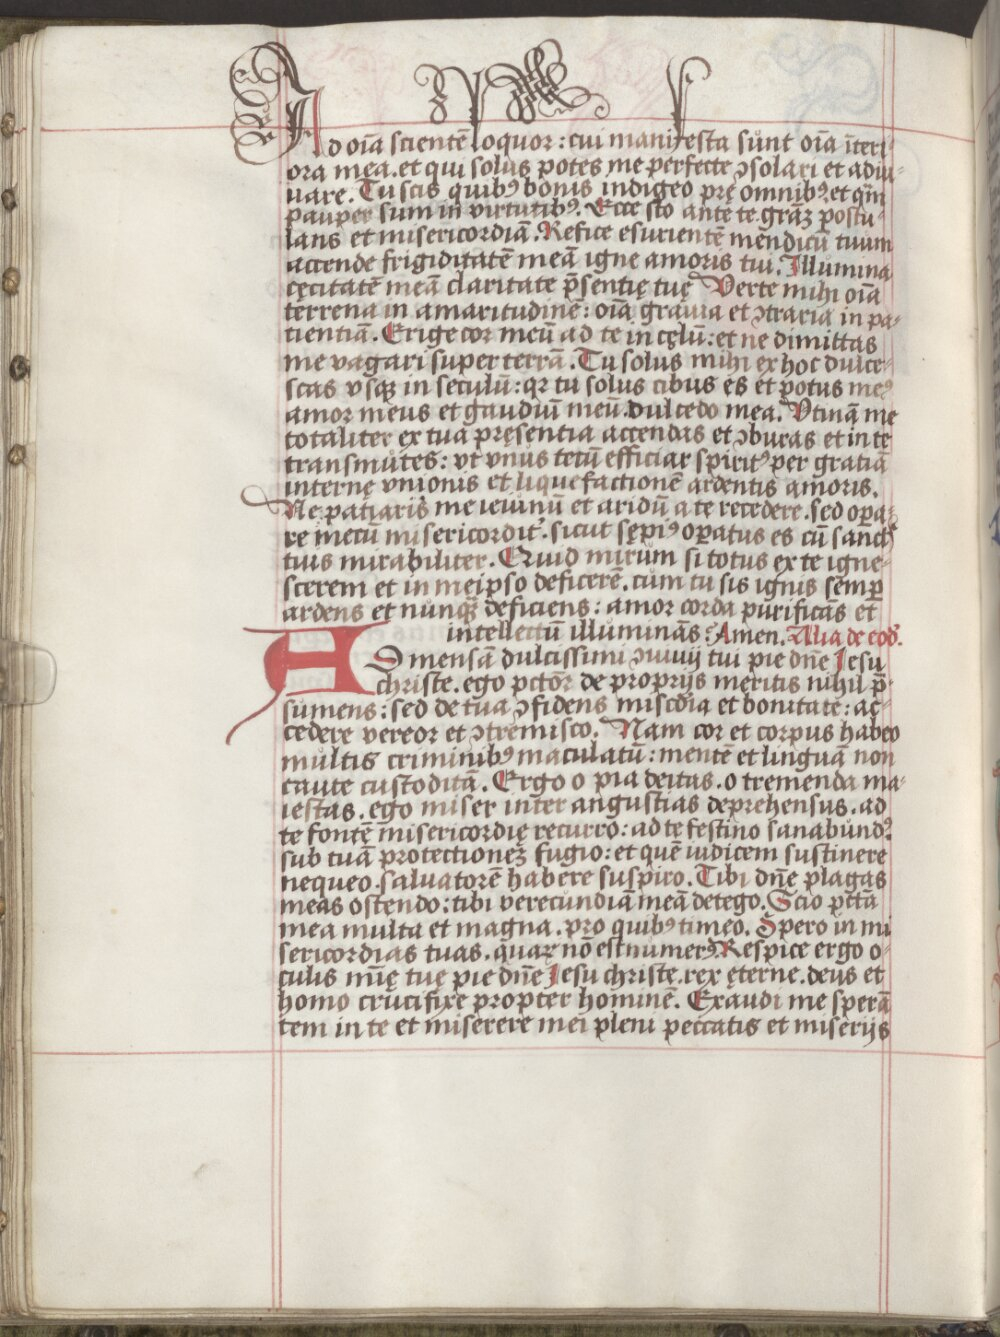 Ad oīa scientē loquor : cui manifesta sunt oīa īteri
ora mea . et qui solus potes me perfecte ꝯsolari et adiu-
uare . Tu scis quibꝰ bonis indigeo prę omnibꝰ et q̄m
pauper sum in virtutibꝰ . Ecce sto ante te grāz postu-
lans et misericordiā . Refice esurientē mendicū tuum
accende frigiditatē meā igne amoris tui . Illumina
cęcitatē meā claritate p̄sentię tuę Verte mihi oīa
terrena in amaritudinē : oīa grauia et ꝯtraria in pa-
tientiā . Erige cor meū ad te in cęlū : et ne dimittas
me vagari super terrā . Tu solus mihi ex hoc dulce-
scas vsqꝫ in seculū : qr tu solus cibus es et potus meꝰ
amor meus et gaudiū meū . dulcedo mea . Vtinā me
totaliter ex tua pręsentia accendas et ꝯburas et in te
transmutes : vt vnus tecū efficiar spiritꝰ per gratiā
internę vnionis et liquefactionē ardentis amoris .
Ne patiaris me ieiunū et aridū a te recedere . sed opa-
re mecū misericordit᷑ . sicut sępiꝰ opatus es cū sanc-
tuis mirabiliter . Quid mirum si totus ex te igne-
scerem et in meipso deficerē . cum tu sis ignis semp
ardens et nunqꝫ deficiens : amor corda purificās et
intellectū illuminās : Amen . Alia de eod .
AD mensā dulcissimi ꝯuiuij tui pie dn̄e Jesu
christe . ego pctōr de proprijs meritis nihil p̄-
sumens : sed de tua ꝯfidens miscdīa et bonitate : ac-
cedere vereor et ꝯtremisco . Nam cor et corpus habeo
multis criminibꝰ maculatū : mentē et linguā non
caute custoditā . Ergo o pia deitas . o tremenda ma-
iestas . ego miser inter angustias deprehensus . ad
te fontē misericordię recurro : ad te festino sanabundꝰ
sub tuā protectionēz fugio : et quē iudicem sustinere
nequeo . saluatorē habere suspiro . Tibi dn̄e plagas
meas ostendo : tibi verecundiā meā detego . Scio pctā
mea multa et magna . pro quibꝰ timeo . Spero in mi
sericordias tuas . quaꝝ nō est numerꝰ Respice ergo o-
culis mīę tuę pie dn̄e Jesu christe . rex ęterne . deus et
homo crucifixe propter hominē . Exaudi me sperā
tem in te et miserere mei pleni peccatis et miserijs